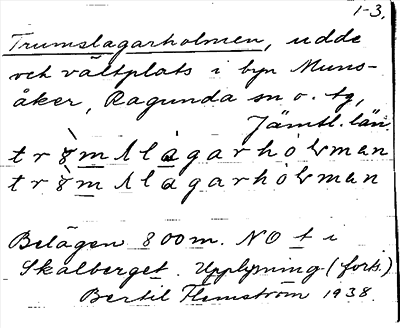 1-3.
Trumslagarholmen, udde
och vältplats i byn Muns-
åker, Ragunda sn o. tg,
Jämtl. län.
Belägen 800 m. NO t i
Skalberget. Upplysning (forts.)
Bertil Flemström 1938.